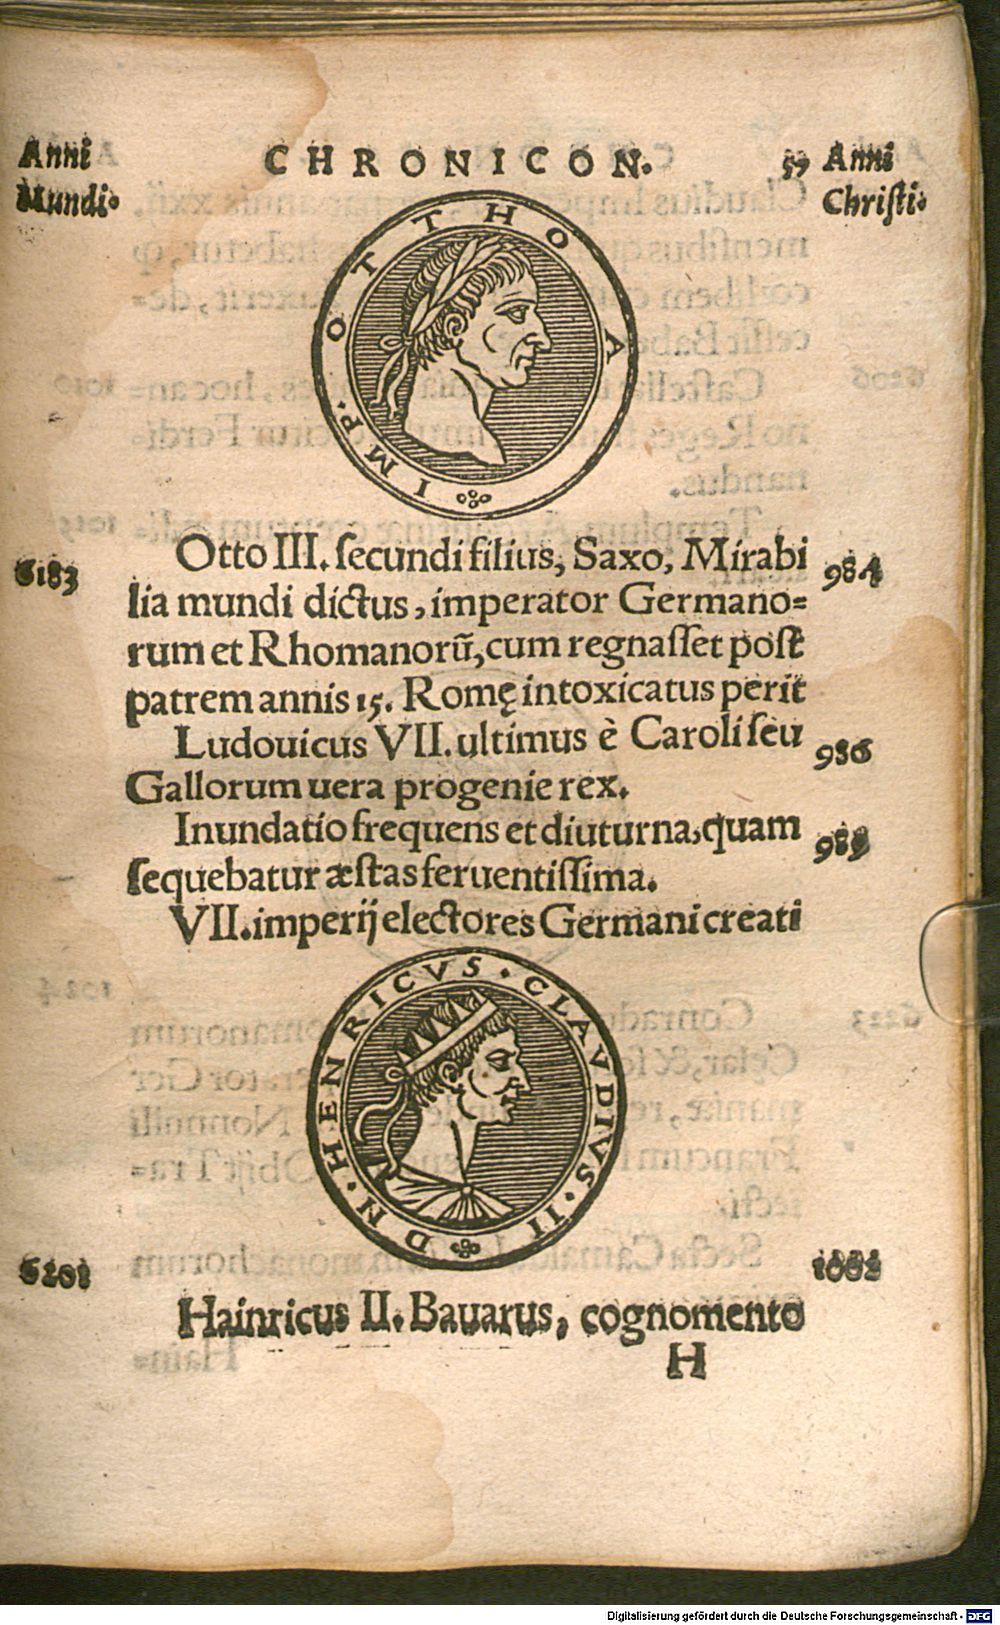 Anni
Mundi.
CHRONICON.
57 Anni
Christi.
IMP. OTTHO A
6183
Otto III. ſecundi filius, Saxo, Mirabi
984
lia mundi dictus, imperator Germano=
rum et Rhomanorū, cum regnaſſet poſt
patrem annis 15. Romę intoxicatus perit
Ludouicus VII. ultimus è Caroli ſeu
986
Gallorum uera progenie rex.
Inundatio frequens et diuturna, quam
989
ſequebatur æſtas feruentiſſima.
VII. imperij electores Germani creati
DN·HENRICVS·CLAVDIVS·II
6201
1002
Hainricus II. Bauarus, cognomento
H
Digitalisierung gefördert durch die Deutsche Forschungsgemeinschaft - DFG